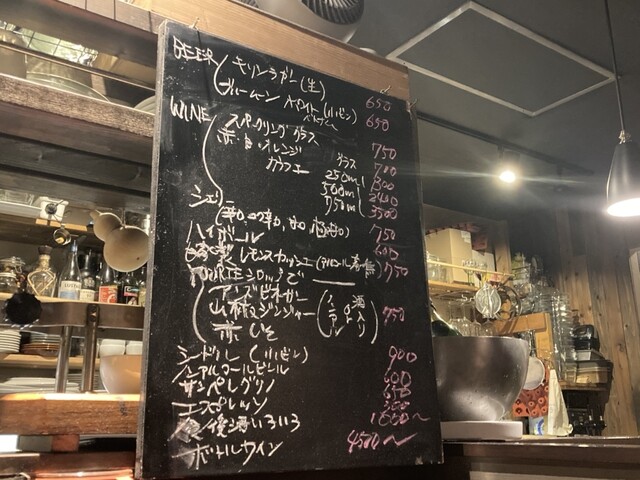 BEER キリンラガー(生) 650
ブルームーン ホワイト(小ビン) 650
WINE スパークリング グラス 750
赤・白・オレンジ グラス 700
カラフェ 250ml 1300
500ml 2400
750ml 3500
シェリー 750
ハイボール 600
レモンスカッシュ(アルコール有・無) 750
シロップで
アンズビネガー
山椒ジンジャー (ノンアル or 酒入り) 750
赤しそ
シードル(小ビン) 900
ノンアルコールビール 600
サンペレグリノ 650
エスプレッソ
食後酒いろいろ 1000〜
ボトルワイン 4500〜